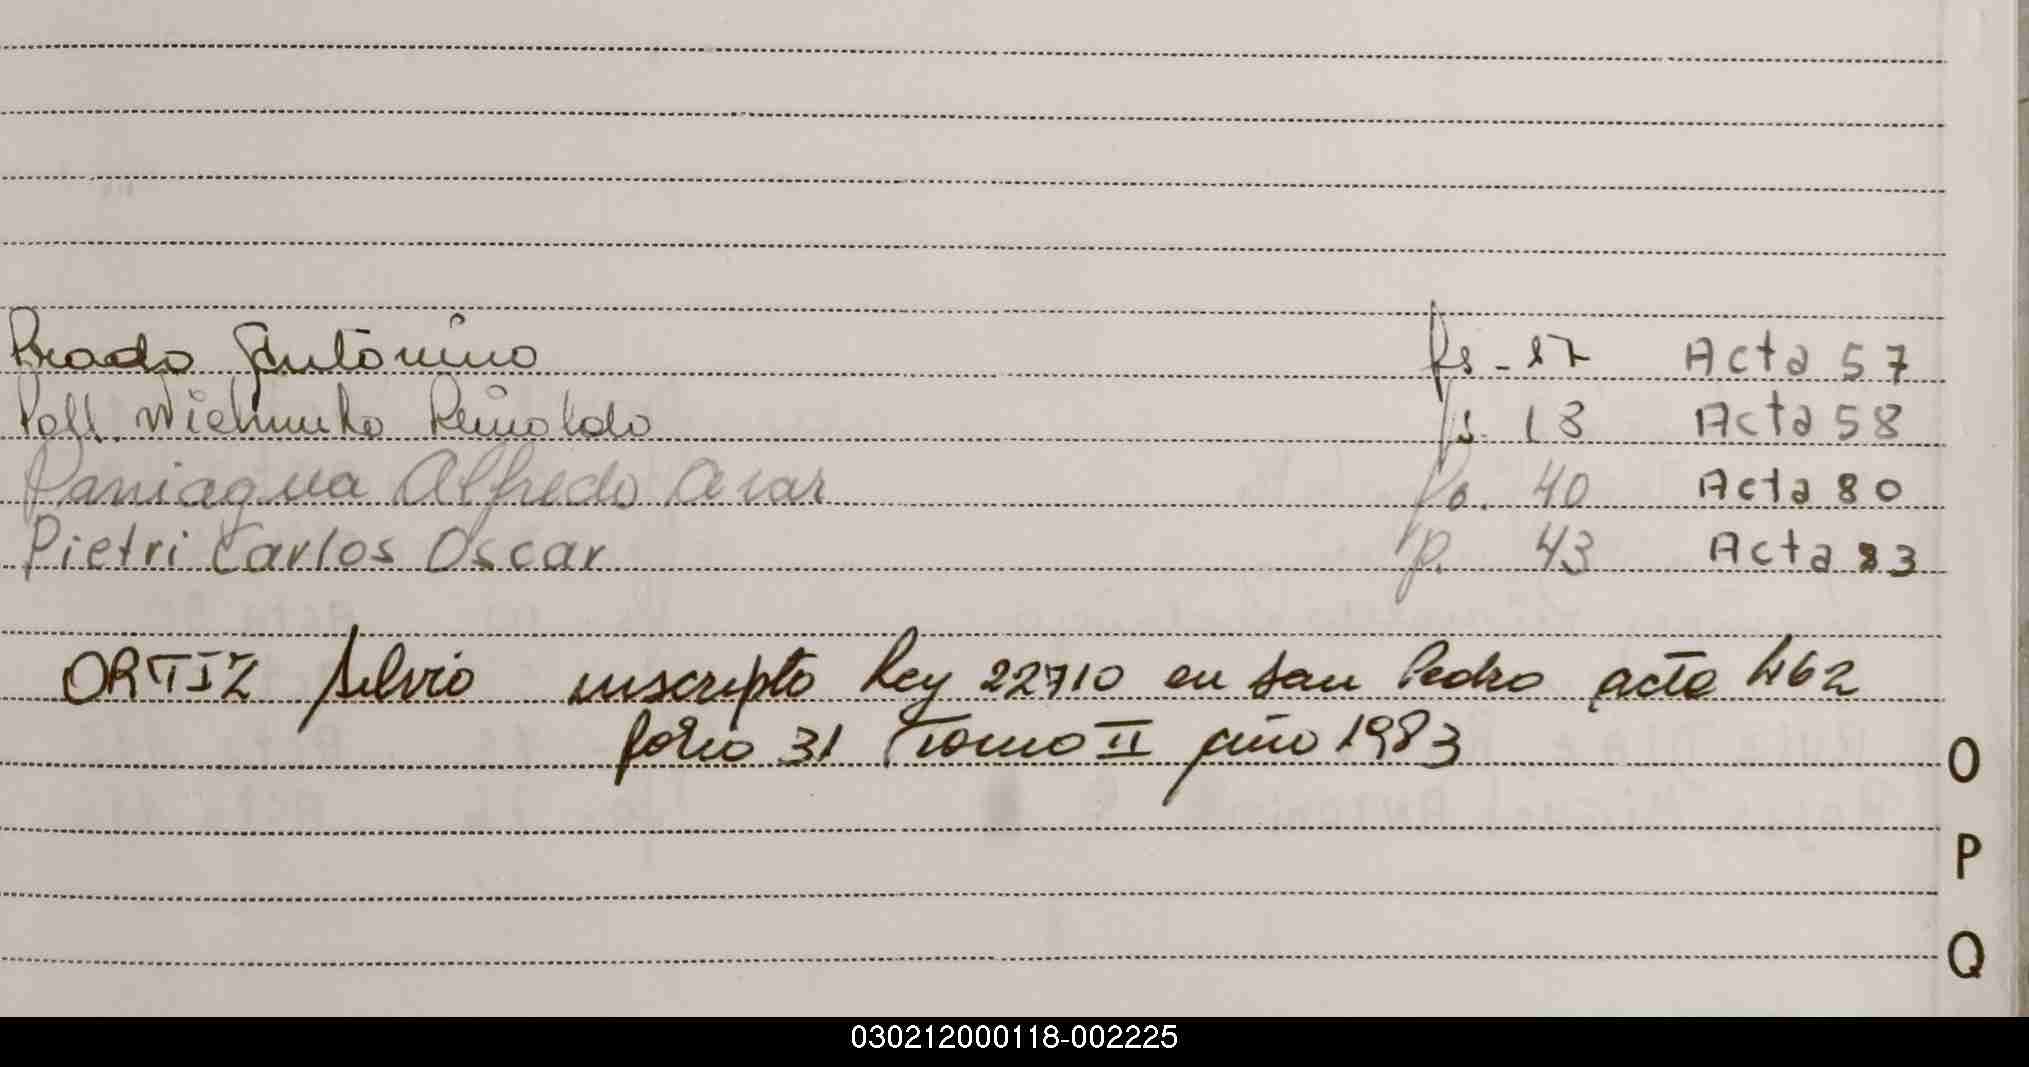 Prado Antonino fs - 17 Acta 57
Poll. Reinoldo fs. 18 Acta 58
Paniagua Alfredo Oscar fo. 40 Acta 80
Pietri Carlos Oscar p. 43 Acta 83
ORTIZ Silvio inscripto Ley 22710 en San Pedro acta 462
folio 31 Tomo II año 1983
O
P
Q
030212000118-002225